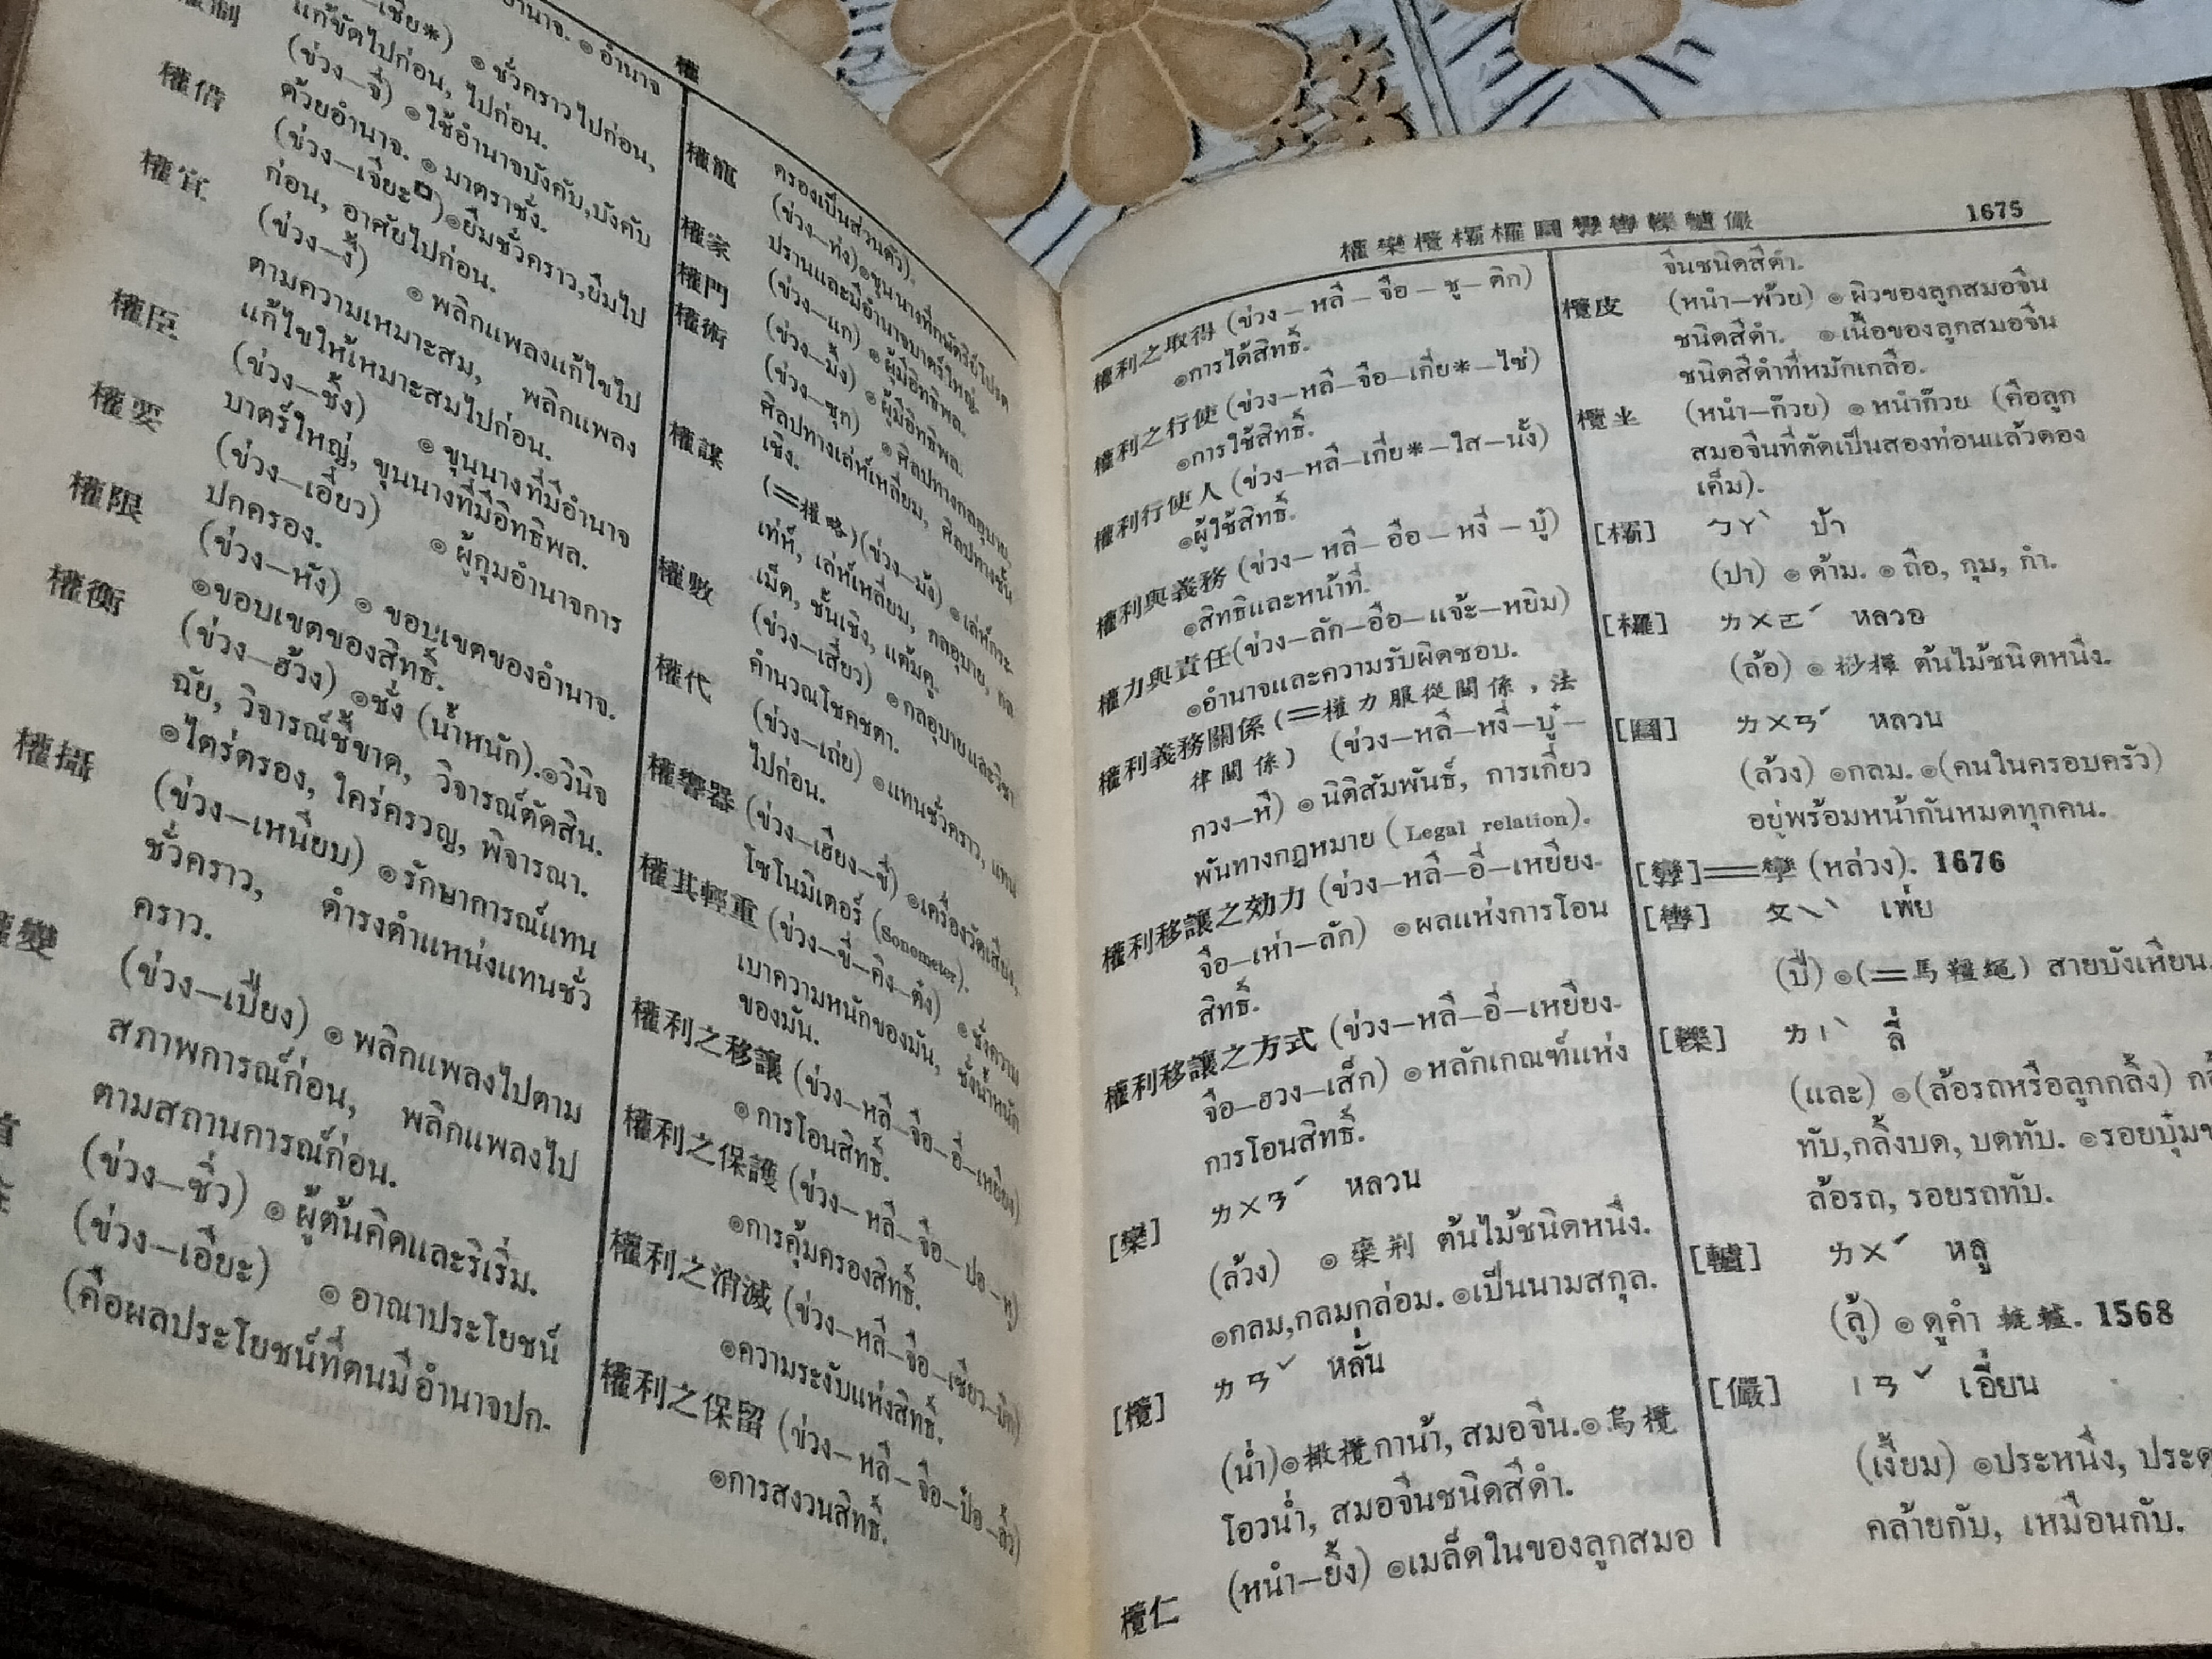 權
เชีย*) ๏ ชั่วคราวไปก่อน,
แก้ขัดไปก่อน, ไปก่อน.
(ข่วง—จี่) ๏ ใช้อำนาจบังคับ,บังคับ
ด้วยอำนาจ. ๏ มาตราชั่ง.
權借 (ข่วง—เจี่ยะ )๏ยืมชั่วคราว,ยืมไป
ก่อน, อาศัยไปก่อน.
權宜 (ข่วง—งี้) ๏ พลิกแพลงแก้ไขไป
ตามความเหมาะสม, พลิกแพลง
แก้ไขให้เหมาะสมไปก่อน.
權臣 (ข่วง—ชิ้ง) ๏ ขุนนางที่มีอำนาจ
บาตร์ใหญ่, ขุนนางที่มีอิทธิพล.
權要 (ข่วง—เอี่ยว) ๏ ผู้กุมอำนาจการ
ปกครอง.
權限 (ข่วง—หัง) ๏ ขอบเขตของอำนาจ.
๏ขอบเขตของสิทธิ์.
權衡 (ข่วง—ฮ้วง) ๏ชั่ง (น้ำหนัก).๏วินิจ
ฉัย, วิจารณ์ชี้ขาด, วิจารณ์ตัดสิน.
๏ไตร่ตรอง, ใคร่ครวญ, พิจารณา.
權攝 (ข่วง—เหนียบ) ๏รักษาการณ์แทน
ชั่วคราว, ดำรงตำแหน่งแทนชั่ว
คราว.
權變 (ข่วง—เปี่ยง) ๏ พลิกแพลงไปตาม
สภาพการณ์ก่อน, พลิกแพลงไป
ตามสถานการณ์ก่อน.
(ข่วง—ชิ่ว) ๏ ผู้ต้นคิดและริเริ่ม.
(ข่วง—เอียะ) ๏ อาณาประโยชน์
(คือผลประโยชน์ที่ตนมีอำนาจปก.
ครองเป็นส่วนตัว).
權寵 (ข่วง—ท่ง)๏ขุนนางที่กษัตริย์โปรด
ปรานและมีอำนาจบาตร์ใหญ่.
權家 (ข่วง—แก) ๏ ผู้มีอิทธิพล.
權門 (ข่วง—มึ้ง) ๏ ผู้มีอิทธิพล.
權術 (ข่วง—ชุก) ๏ ศิลปทางกลอุบาย,
ศิลปทางเล่ห์เหลี่ยม, ศิลปทางชั้น
เชิง.
權謀 (=權略)(ข่วง—ม้ง) ๏ เล่ห์กระ-
เท่ห์, เล่ห์เหลี่ยม, กลอุบาย, กล
เม็ด, ชั้นเชิง, แต้มคู.
權數 (ข่วง—เสี่ยว) ๏ กลอุบายและวิชา
คำนวณโชคชตา.
權代 (ข่วง—เถ่ย) ๏แทนชั่วคราว, แทน
ไปก่อน.
權響器 (ข่วง—เฮียง—ขี่) ๏เครื่องวัดเสียง,
โซโนมิเตอร์ (Sonometer).
權其輕重 (ข่วง—ขี่—คิง—ตั๋ง) ๏ ชั่งความ
เบาความหนักของมัน, ชั่งน้ำหนัก
ของมัน.
權利之移讓 (ข่วง—หลี—จือ—อี๋—เหยียง)
๏ การโอนสิทธิ์.
權利之保護 (ข่วง— หลี— จือ— ปอ— หู)
๏การคุ้มครองสิทธิ์.
權利之消滅 (ข่วง—หลี—จือ—เซียว—มิก)
๏ความระงับแห่งสิทธิ์.
權利之保留 (ข่วง— หลี— จือ—ป้อ—ลิ้ว)
๏การสงวนสิทธิ์.
權欒欖欛欏圞彎轡轢轤儼 1675
權利之取得 (ข่วง — หลี — จือ — ชู — ติก)
๏การได้สิทธิ์.
權利之行使 (ข่วง—หลี—จือ—เกี่ย*—ไซ่)
๏การใช้สิทธิ์.
權利行使人 (ข่วง—หลี—เกี่ย*—ใส—นั้ง)
๏ผู้ใช้สิทธิ์.
權利與義務 (ข่วง— หลี— อือ— หงี่ — บู๋)
๏สิทธิและหน้าที่.
權力與責任(ข่วง—ลัก—อือ—แจ้ะ—หยิม)
๏อำนาจและความรับผิดชอบ.
權利義務關係 (=權力服從關係,法
律關係) (ข่วง—หลี—หงี่—บู๋—
กวง—หี) ๏ นิติสัมพันธ์, การเกี่ยว
พันทางกฎหมาย (Legal relation).
權利移讓之効力 (ข่วง—หลี—อี๋—เหยียง-
จือ—เห่า—ลัก) ๏ผลแห่งการโอน
สิทธิ์.
權利移讓之方式 (ข่วง—หลี—อี๋—เหยียง-
จือ—ฮวง—เส็ก) ๏หลักเกณฑ์แห่ง
การโอนสิทธิ์.
[欒] ㄌㄨㄢˊ หลวน
(ล้วง) ๏ 欒荆 ต้นไม้ชนิดหนึ่ง.
๏กลม,กลมกล่อม. ๏เป็นนามสกุล.
[欖] ㄌㄢˇ หลั่น
(น่ำ)๏橄欖กาน้า, สมอจีน.๏烏欖
โอวน่ำ, สมอจีนชนิดสีดำ.
欖仁 (หนำ—ยิ้ง) ๏เมล็ดในของลูกสมอ
จีนชนิดสีดำ.
欖皮 (หนำ—พ้วย) ๏ ผิวของลูกสมอจีน
ชนิดสีดำ. ๏เนื้อของลูกสมอจีน
ชนิดสีดำที่หมักเกลือ.
欖𡊄 (หนำ—ก๊วย) ๏ หนำก๊วย (คือลูก
สมอจีนที่ตัดเป็นสองท่อนแล้วดอง
เค็ม).
[欛] ㄅㄚˋ ป้า
(ปา) ๏ ด้าม. ๏ ถือ, กุม, กำ.
[欏] ㄌㄨㄛˊ หลวอ
(ล้อ) ๏ 桫欏 ต้นไม้ชนิดหนึ่ง.
[圞] ㄌㄨㄢˊ หลวน
(ล้วง) ๏กลม. ๏(คนในครอบครัว)
อยู่พร้อมหน้ากันหมดทุกคน.
=孿 (หล่วง). 1676
[轡] ㄆㄟˋ เพ่ย
(ปี) ๏(=馬韁繩) สายบังเหียน.
[轢] ㄌㄧˋ ลี่
(และ) ๏(ล้อรถหรือลูกกลิ้ง)
ทับ,กลิ้งบด, บดทับ. ๏รอยบุ๋ม
ล้อรถ, รอยรถทับ.
[轤] ㄌㄨˊ หลู
(ลู้) ๏ ดูคำ 1568
[儼] ㄧㄢˇ เอี่ยน
(เงี้ยม) ๏ประหนึ่ง,
คล้ายกับ, เหมือนกับ.